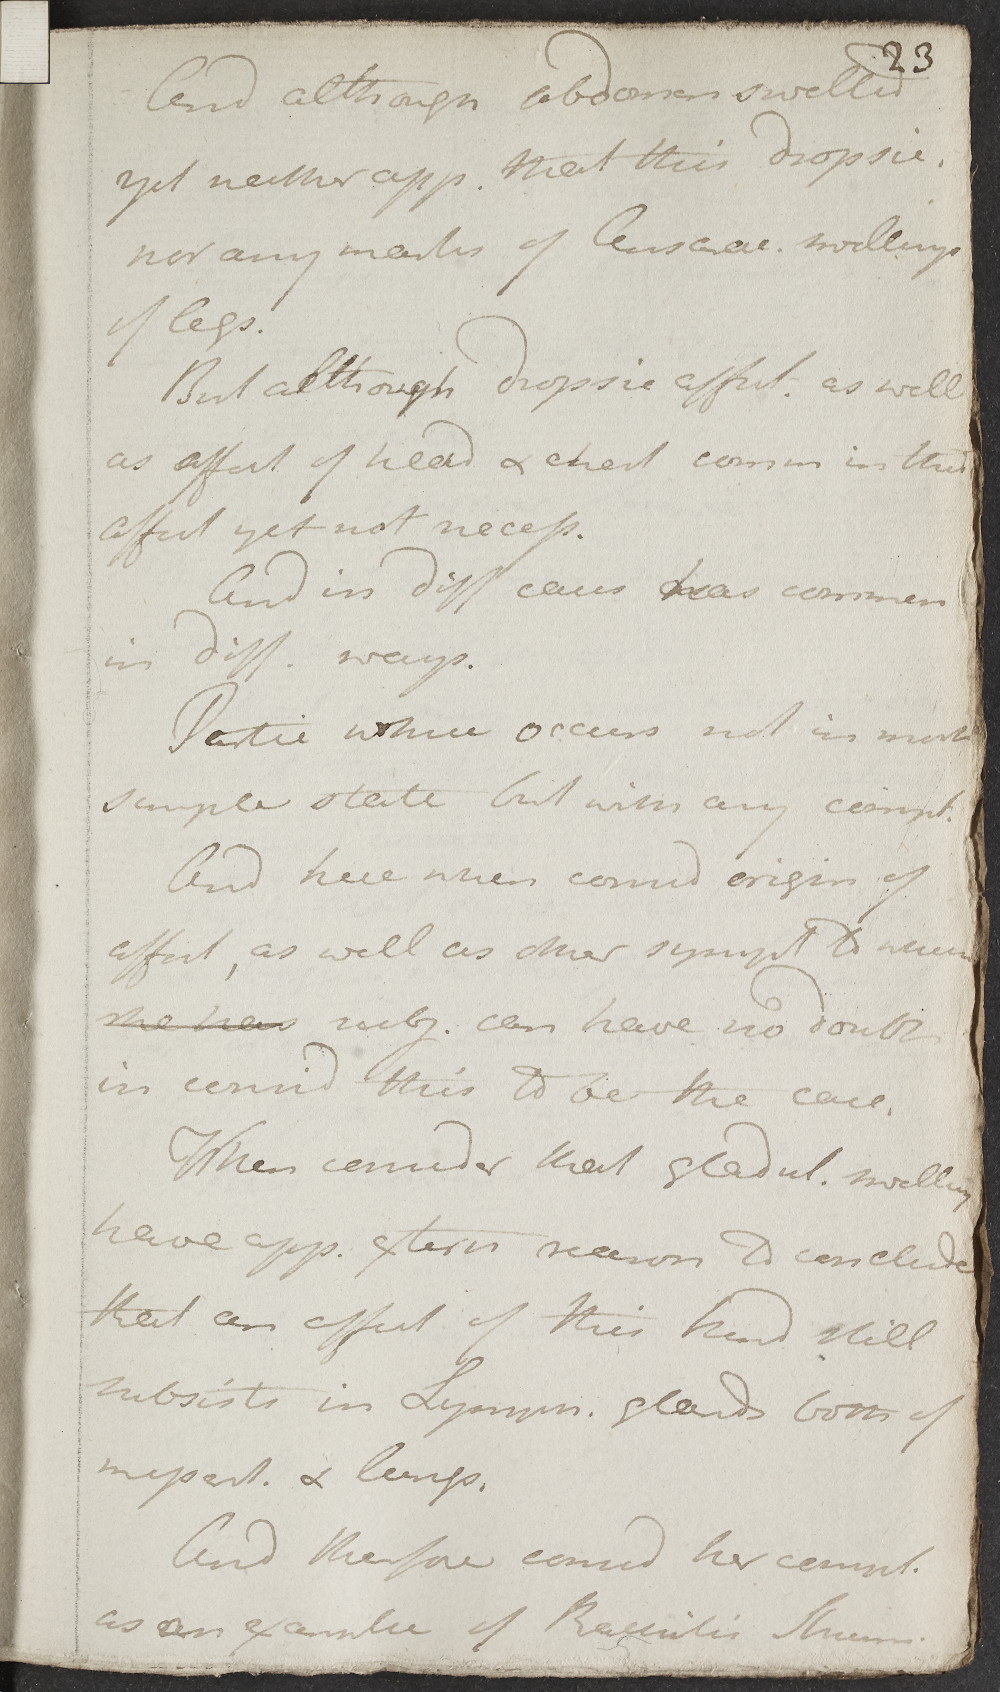 23
And although abdomen swelled
yet neither app. that this dropsie.
nor any marks of Ansarac. swellings
of legs.
But although dropsie affect. as well
as affect of head & chest comm in this
affect yet not necess.
And in diff cases has commen
in diff. ways.
Partic where occurs not in most
simple state but with any compt.
And here when consid origin of
affect, as well as other sympt to whom
she has subj. can have no doubt
in consid this to be the case.
When consider that gladul. swelling
have app. extern reason to conclude
that an affect of this kind still
subsists in Lymph. glands both of
mesent. & lungs.
And therefore consid her compt.
as an example of Rachitis Strum.